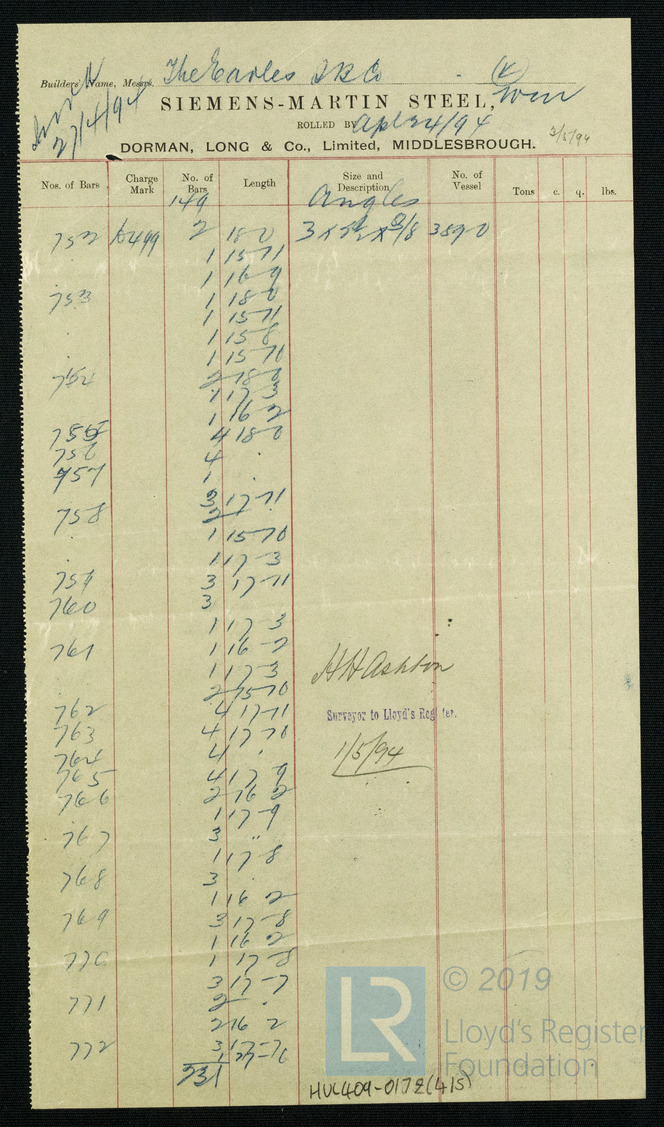 Builders' Name, Messrs. The Earles S B Co (4)
27/4/94
SIEMENS-MARTIN STEEL,
ROLLED BY Apl 24/94
2/5/94
DORMAN, LONG & Co., Limited, MIDDLESBROUGH.
Nos. of Bars Charge Mark No. of Bars Length Size and Description No. of Vessel Tons c. q. lbs.
149 Angles
752 2 18-0 3890
1 15-11
1 16-9
753 1 18-0
1 15-11
1 15-8
1 15-10
754 2 18-0
1 17-3
1 16-2
755 4 18-0
756 4 "
757 1
3 17-11
758 2
1 15-10
1 17-3
759 3 17-11
760 3
1 17-3
761 1 16-2
1 17-3
2 15-10
H H Ashton
762 4 17-11
Surveyor to Lloyd's Register.
763 4 17-10
1/5/94
764 4 "
765 4 17-9
766 2 16 2
1 17-9
767 3 "
1 17-8
768 3
1 16 2
769 3 17-8
1 16 2
770 1 17-8
3 17-7
771 2 "
2 16 2
772 3
231
© 2019
LR
Lloyd's Register
Foundation
HUL409-0172(4/5)